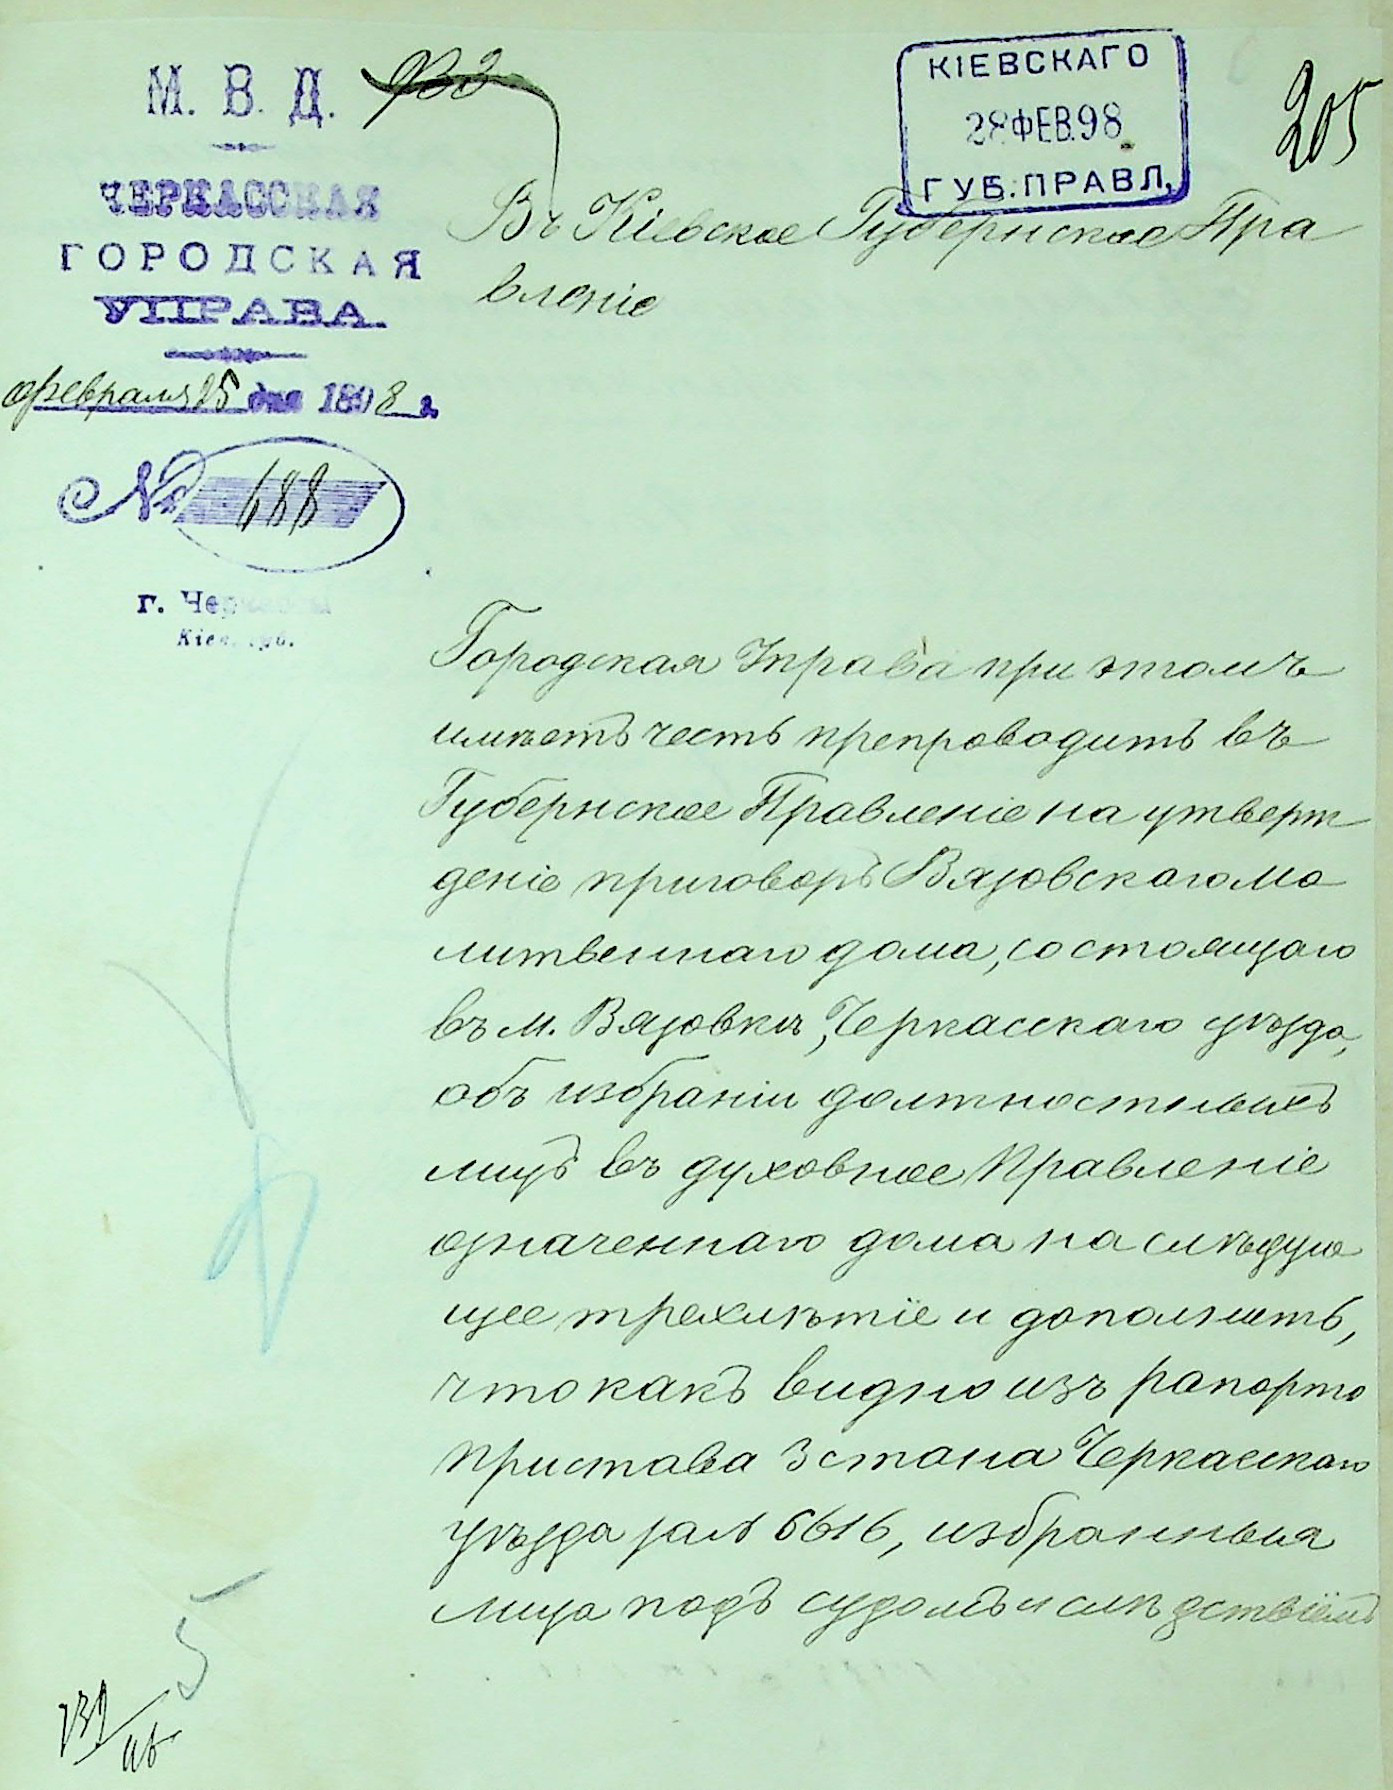 М. В. Д.
ЧЕРКАССКАЯ
ГОРОДСКАЯ
УПРАВА
февраля 25 дня 1898 г.
№ 688
г. Черкассы
Кіев. губ.
КІЕВСКАГО
28 ФЕВ. 98
ГУБ. ПРАВЛ.
205
Въ Кіевское Губернское Пра
вленіе
Городская Управа при этомъ
имѣетъ честь препроводить въ
Губернское Правленіе на утверж
деніе приговоръ Вязовскаго мо
литвеннаго дома, состоящаго
въ м. Вязовкѣ, Черкасскаго уѣзда,
объ избраніи должностныхъ
лицъ въ духовное Правленіе
означеннаго дома на слѣдую
щее трехлѣтіе и дополнить,
что какъ видно изъ рапорта
пристава 3 стана Черкасскаго
уѣзда за № 6616, избранныя
лица подъ судомъ и слѣдствіемъ
5